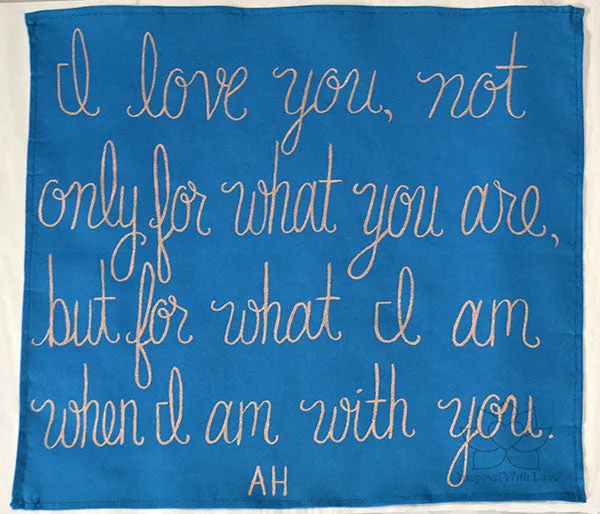 I love you, not
only for what you are,
but for what I am
when I am with you.
AH
Inspired With Love